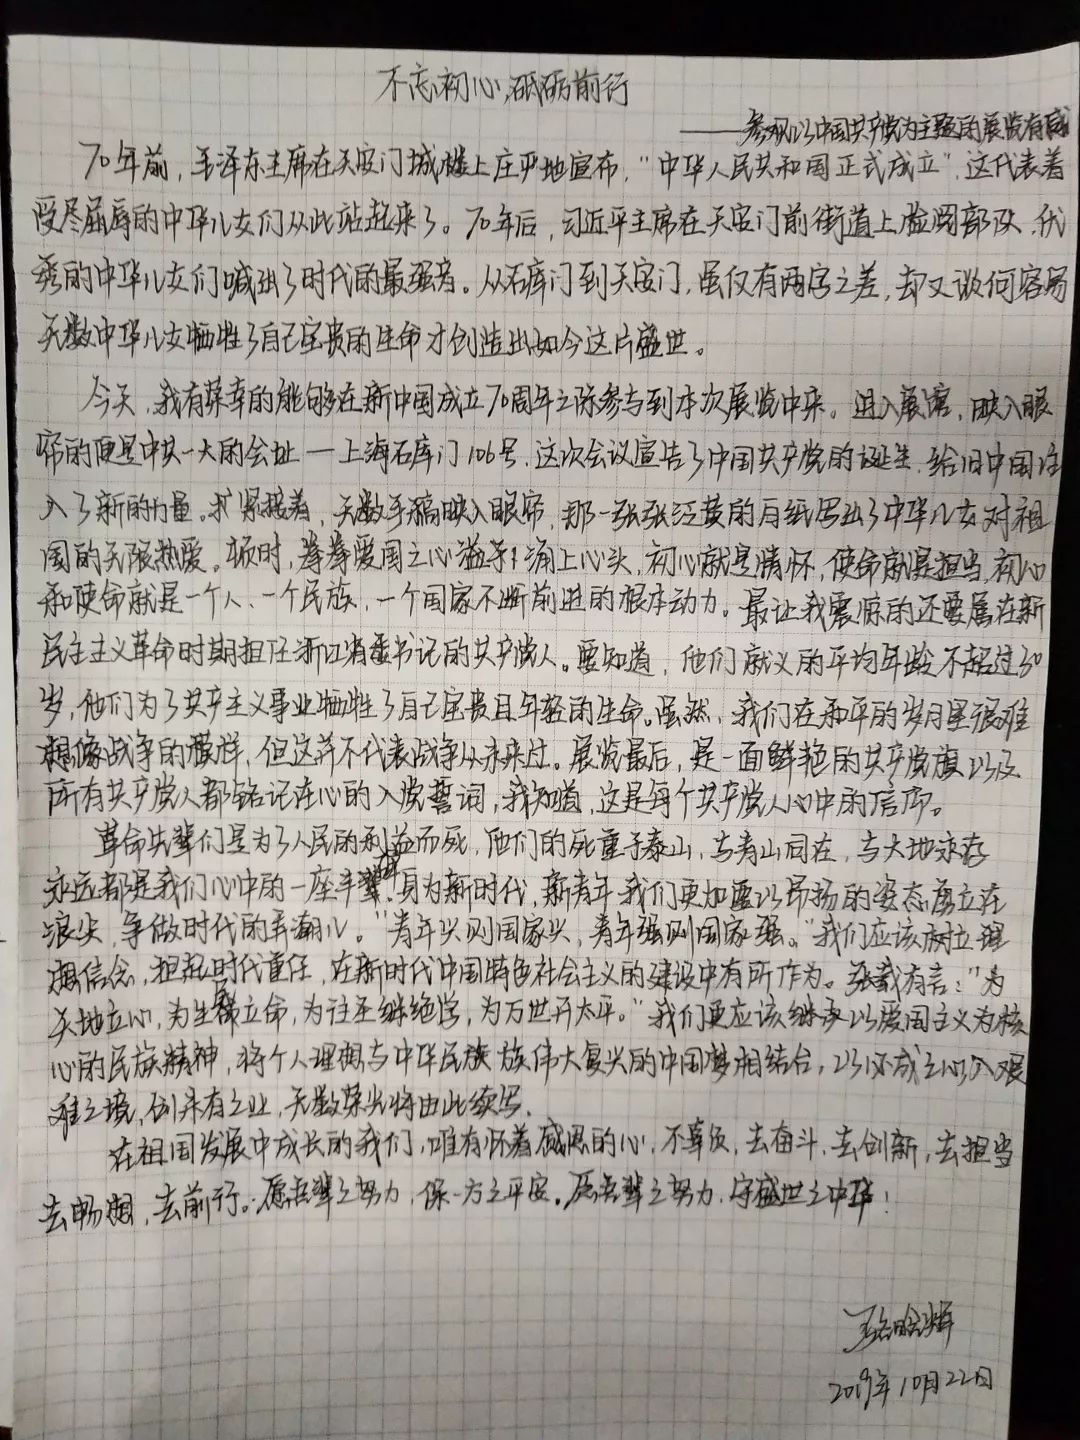 不忘初心,砥砺前行
——参观以中国共产党为主题的展览有感
70年前,毛泽东主席在天安门城楼上庄严地宣布,“中华人民共和国正式成立”,这代表着
受尽屈辱的中华儿女们从此站起来了。70年后,习近平主席在天安门前街道上检阅部队,优
秀的中华儿女们喊出了时代的最强音。从石库门到天安门,虽仅有两字之差,却又谈何容易
无数中华儿女牺牲了自己宝贵的生命才创造出如今这片盛世。
今天,我有荣幸的能够在新中国成立70周年之际参与到本次展览中来。进入展馆,映入眼
帘的便是中共一大的会址—上海石库门106号,这次会议宣告了中国共产党的诞生,给旧中国注
入了新的力量。紧接着,无数手稿映入眼帘,那一张张泛黄的白纸写出了中华儿女对祖
国的无限热爱。顿时,拳拳爱国之心涌上心头,初心就是情怀,使命就是担当,初心
和使命就是一个人、一个民族、一个国家不断前进的根本动力。最让我震惊的还要属在新
民主主义革命时期担任浙江省委书记的共产党人。要知道,他们就义的平均年龄不超过30
岁,他们为了共产主义事业牺牲了自己宝贵且年轻的生命。虽然,我们在和平的岁月里很难
想像战争的模样,但这并不代表战争从未来过。展览最后,是一面鲜艳的共产党旗以及
所有共产党人都铭记在心的入党誓词,我知道,这是每个共产党人心中的信仰。
革命先辈们是为了人民的利益而死,他们的死重于泰山,与青山同在,与大地永存
永远都是我们心中的一座丰碑。身为新时代,新青年我们更加要以昂扬的姿态勇立在
浪尖,争做时代的弄潮儿。“青年兴则国家兴,青年强则国家强。”我们应该树立理
想信念,担起时代重任,在新时代中国特色社会主义的建设中有所作为。张载有言:“为
天地立心,为生民立命,为往圣继绝学,为万世开太平。”我们更应该继承以爱国主义为核
心的民族精神,将个人理想与中华民族族伟大复兴的中国梦相结合,以必成之心,入艰
难之境,创未有之业,无数荣光将由此续写.
在祖国发展中成长的我们,唯有怀着感恩的心,不辜负,去奋斗,去创新,去担当
去畅想,去前行。愿吾辈之努力,保一方之平安。愿吾辈之努力,守盛世之中华!
2019年10月22日